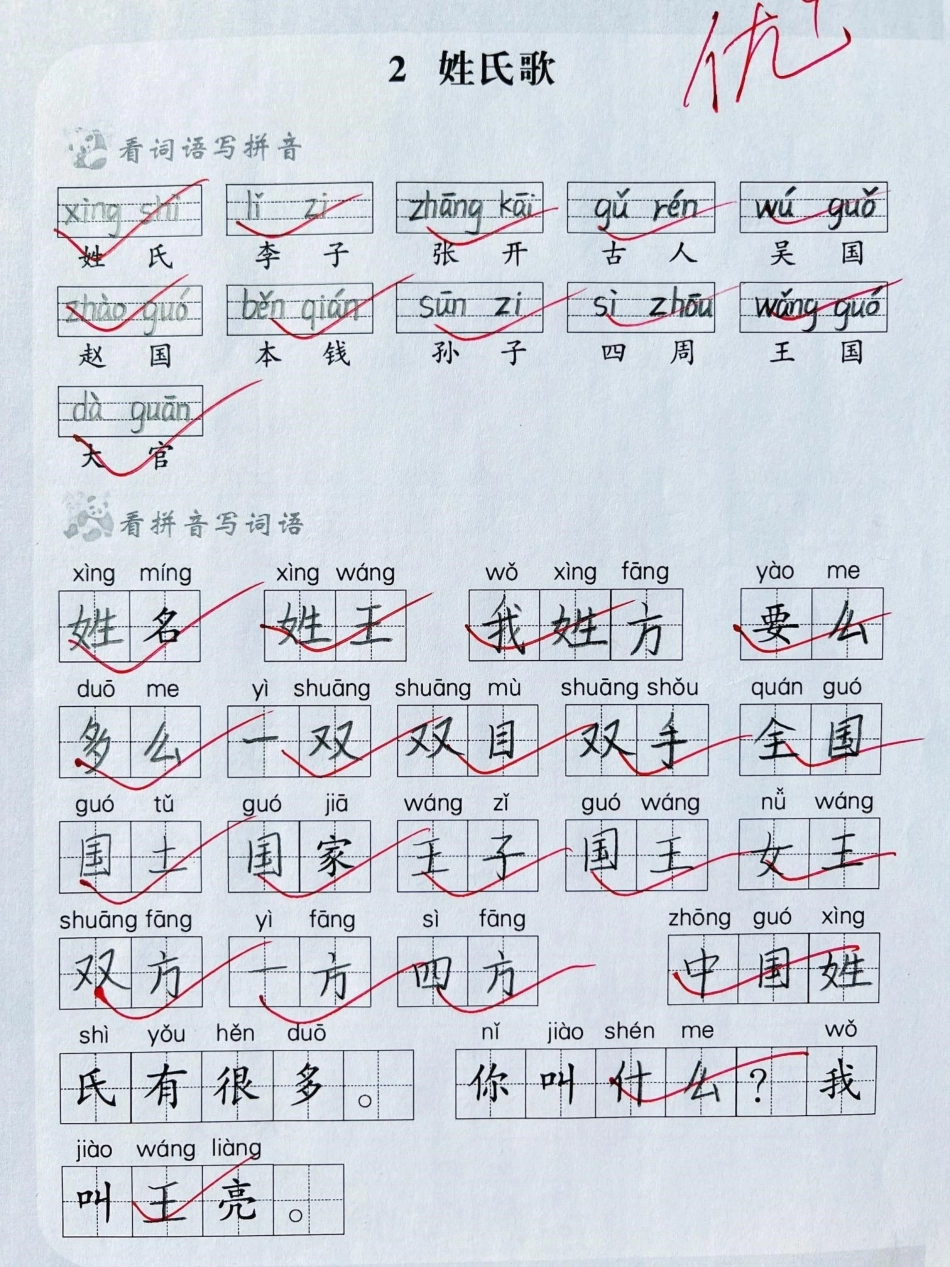 优
2 姓氏歌
看词语写拼音
xìng shì lǐ zi zhāng kāi gǔ rén wú guǒ
姓 氏 李 子 张 开 古 人 吴 国
zhào guó běn qián sūn zi sì zhōu wáng guó
赵 国 本 钱 孙 子 四 周 王 国
dà guān
大 官
看拼音写词语
xìng míng xìng wáng wǒ xìng fāng yào me
姓 名 姓 王 我 姓 方 要 么
duō me yì shuāng shuāng mù shuāng shǒu quán guó
多 么 一 双 双 目 双 手 全 国
guó tǔ guó jiā wáng zǐ guó wáng nǚ wáng
国 土 国 家 王 子 国 王 女 王
shuāng fāng yì fāng sì fāng zhōng guó xìng
双 方 一 方 四 方 中 国 姓
shì yǒu hěn duō nǐ jiào shén me wǒ
氏 有 很 多 。 你 叫 什 么 ? 我
jiào wáng liàng
叫 王 亮 。